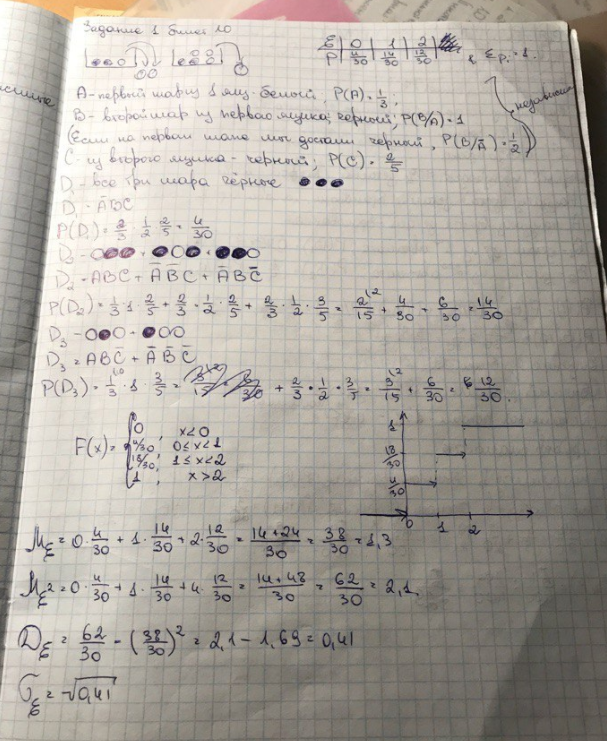 Задание 1 билет 10
ξ | 0 | 1 | 2
P | 4/30 | 14/30 | 12/30 , Σpᵢ = 1.
A - первый шар из 1 ящ. белый, P(A) = 1/3;
B - второй шар из первого ящика; чёрный; P(B/A) = 1
(Если на первом шаге мы достали чёрный, P(B/Ā) = 1/2)
C - из второго ящика - чёрный; P(C) = 2/5
D₁ - все три шара чёрные
D₁ = ĀBC
P(D₁) = 2/3 · 1/2 · 2/5 = 4/30
D₂ -
D₂ = ABC + ĀB̄C + ĀBC̄
P(D₂) = 1/3 · 1 · 2/5 + 2/3 · 1/2 · 2/5 + 2/3 · 1/2 · 3/5 = 2/15 + 4/30 + 6/30 = 14/30
D₃ -
D₃ = ABC̄ + ĀB̄C̄
P(D₃) = 1/3 · 1 · 3/5 + 2/3 · 1/2 · 3/5 = 3/15 + 6/30 = 12/30
F(x) = { 0, x<0
4/30, 0≤x<1
18/30, 1≤x<2
1, x>2
1
18/30
4/30
0 1 2
Mξ = 0 · 4/30 + 1 · 14/30 + 2 · 12/30 = (14+24)/30 = 38/30 = 1,3
Mξ² = 0 · 4/30 + 1 · 14/30 + 4 · 12/30 = (14+48)/30 = 62/30 = 2,1
Dξ = 62/30 - (38/30)² = 2,1 - 1,69 = 0,41
σξ = √0,41